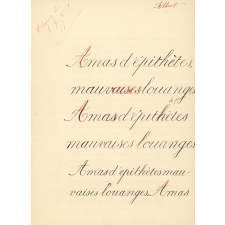 Albert
Amas d'épithètes,
mauvaises louanges
Amas d'épithètes
mauvaises louanges
Amas d'épithètes mau-
vaises louanges. Amas